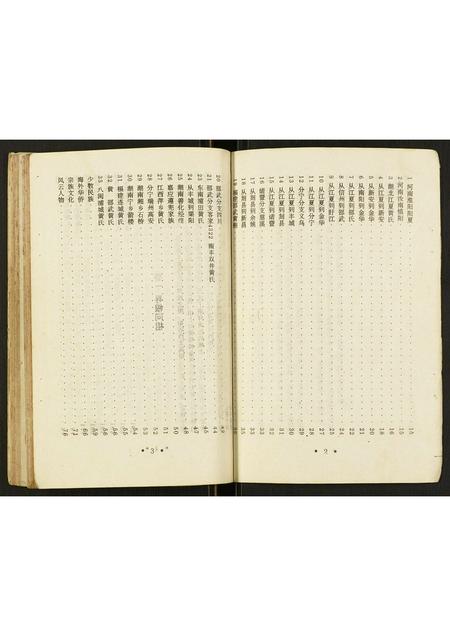 1 河南淮阳阳夏 15
2 河南汝南慎阳 15
3 湖龙江夏黄氏 16
4 从江夏到新安 18
5 从新安到金华 20
6 从南阳到金华 21
7 从江夏到邵武 22
8 从信州到邵武 24
9 从江夏到盱江 25
10 从江夏到金华 27
11 从江夏到分宁 28
12 分宁分支义乌 29
13 从江夏到丰城 30
14 从江夏到 31
15 从江夏到诸暨 32
16 诸暨分支慈溪 33
17 从剡县到余姚 33
18 从剡县到新昌 35
19 福建邵武黄 36
• 2 •
20 邵武分支四川
21 邵武分支客家
22 梅丰双井黄氏 44
23 东南莆田黄氏 45
24 从丰城到溧阳 47
25 湖南善化经 48
26 嘉应遵宪家族 50
27 江西萍乡黄氏 51
28 分宁瑞州高安 52
29 湖南湘乡石桥 53
30 湖南宁乡箭楼 54
31 福建连城黄氏 55
32 黄 邵武黄氏 56
33 八闽浦城黄氏 56
少数民族 59
海外华侨 66
宗族文化 71
风云人物 76
• 3 •